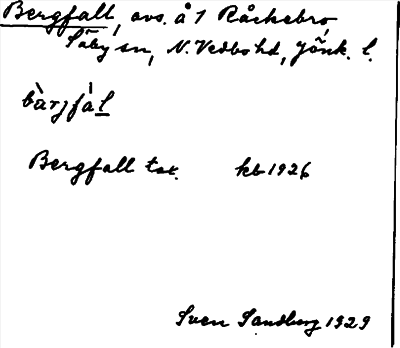 Bergfall, avs. å 1 Råckebro,
Säby sn, N. Vedbo hd, Jönk. l.
bàrjfàl
Bergfall tor. kb 1926
Sven Sandberg 1929